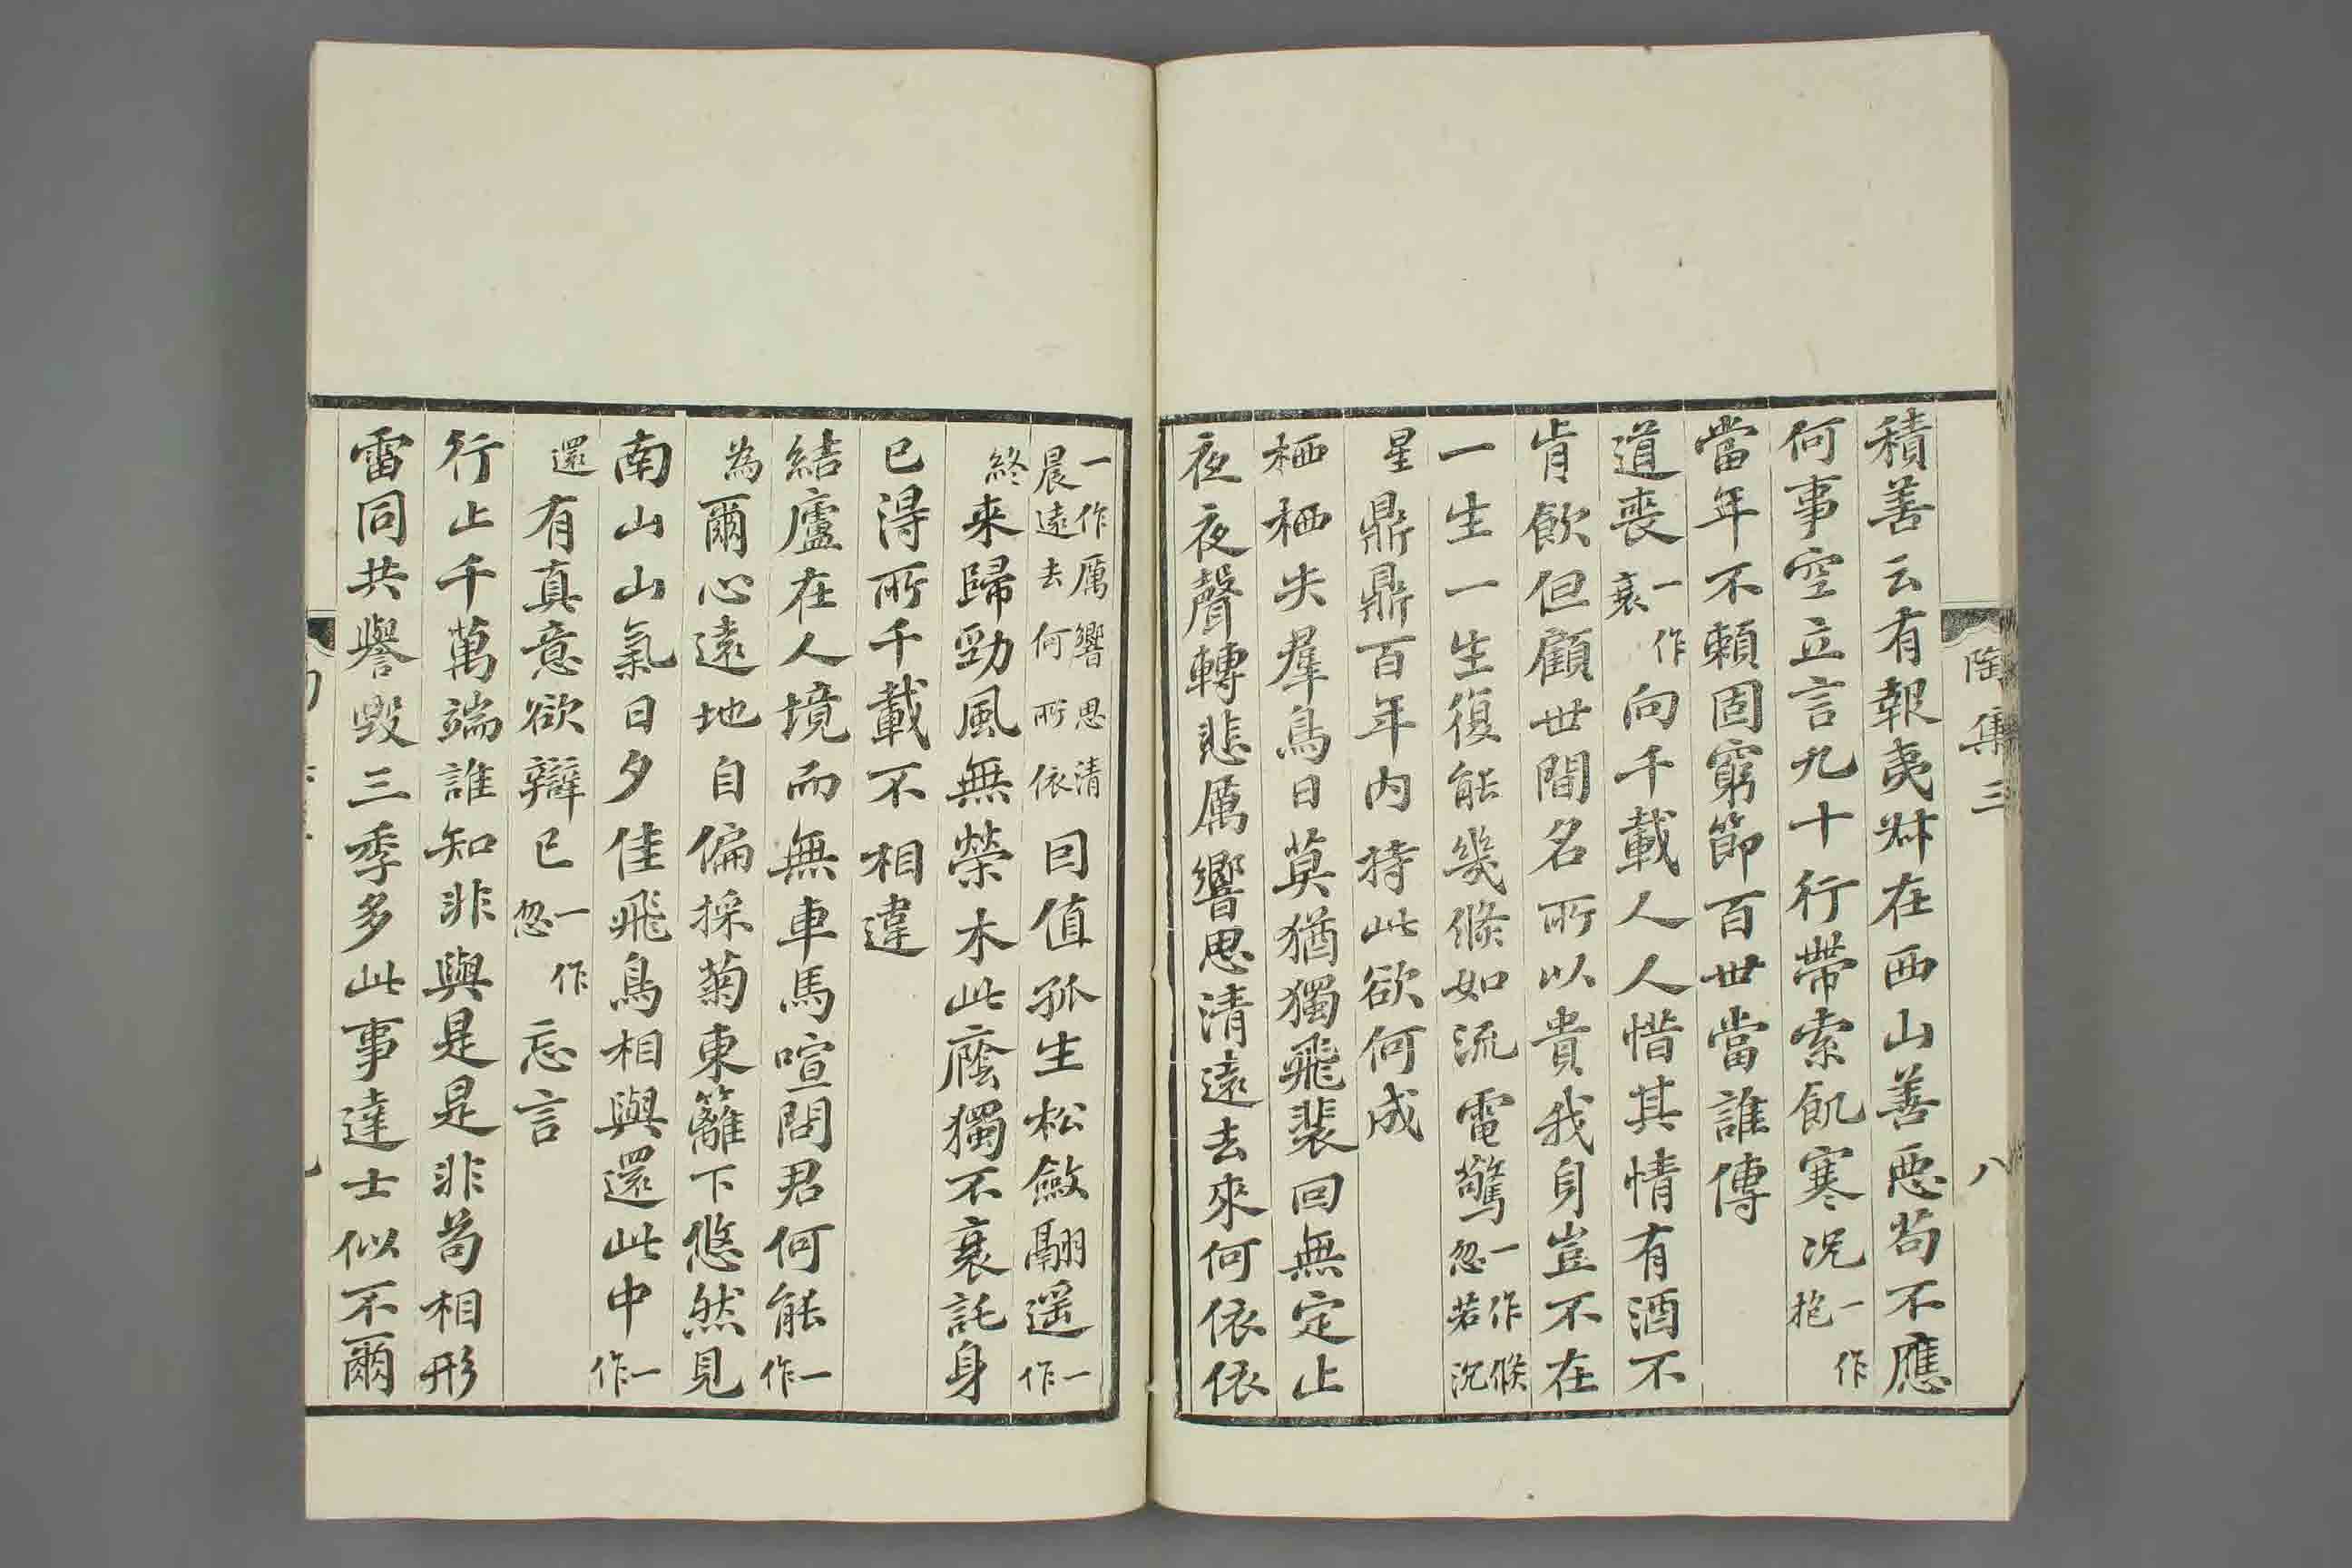 陶集三
八
積善云有報夷叔在西山善惡茍不應
何事空立言九十行帶索飢寒況一作抱
當年不賴固窮節百世當誰傳
道喪一作衰向千載人人惜其情有酒不
肯飲但顧世間名所以貴我身豈不在
一生一生復能幾倏如流電驚一作倏忽若沉
星鼎鼎百年內持此欲何成
栖栖失羣鳥日莫猶獨飛裴回無定止
夜夜聲轉悲厲響思清遠去來何依依
一作厲響思清晨遠去何所依因值孤生松斂翮遥一作
終來歸勁風無榮木此廕獨不衰託身
已得所千載不相違
結廬在人境而無車馬喧問君何能一作
為爾心遠地自偏採菊東籬下悠然見
南山山氣日夕佳飛鳥相與還此中一作
還有真意欲辯已一作忽忘言
行止千萬端誰知非與是是非茍相形
雷同共譽毀三季多此事達士似不爾